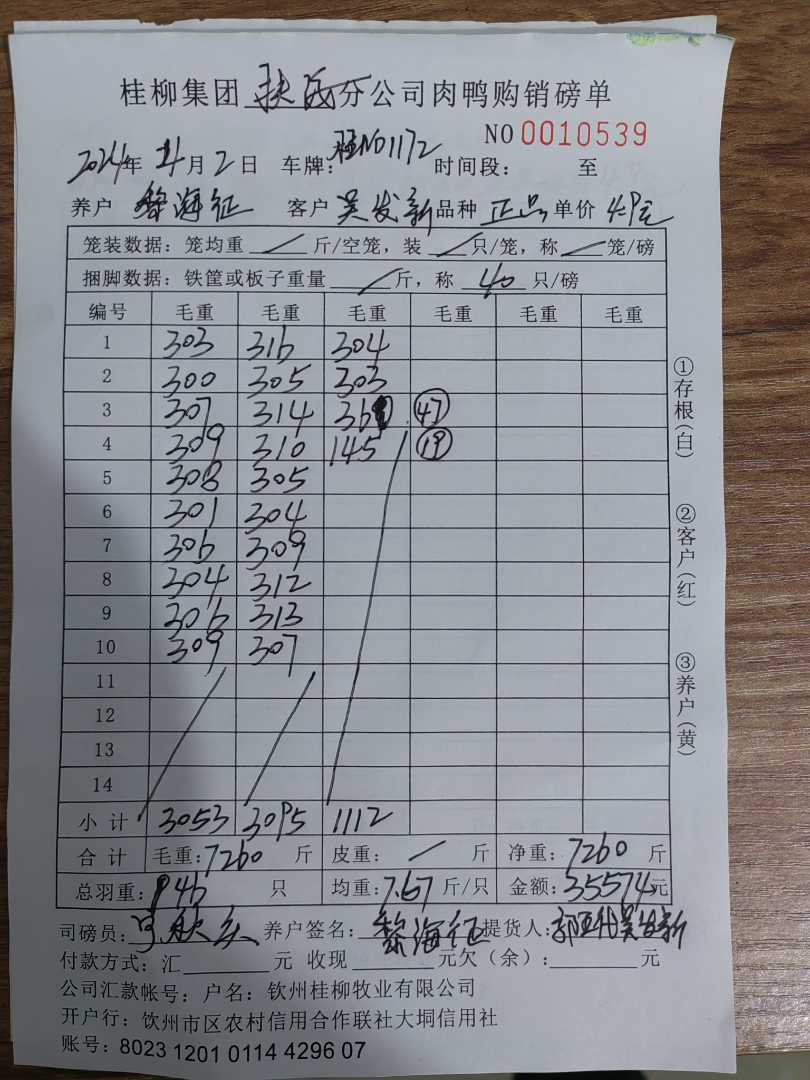 桂柳集团 扶绥 分公司肉鸭购销磅单
NO 0010539
2024年 11月 2日 车牌：桂N01172 时间段： 至
养户 黎海征 客户 吴发新 品种 正品 单价 4.9元
笼装数据：笼均重 / 斤/空笼，装 / 只/笼，称 / 笼/磅
捆脚数据：铁筐或板子重量 / 斤，称 40 只/磅
编号 毛重 毛重 毛重 毛重 毛重 毛重
1 303 316 304
2 300 305 303
3 307 314 360 47
4 309 310 145 19
5 308 305
6 301 304
7 306 309
8 304 312
9 306 313
10 309 307
11
12
13
14
小计 3053 3095 1112
合计 毛重：7260 斤 皮重： / 斤 净重：7260 斤
总羽重：946 只 均重：7.67 斤/只 金额：35574元
司磅员： 养户签名：黎海征 提货人： 吴发新
付款方式：汇 元 收现 元欠（余）： 元
公司汇款帐号：户名：钦州桂柳牧业有限公司
开户行：钦州市区农村信用合作联社大垌信用社
账号：8023 1201 0114 4296 07
①存根（白）
②客户（红）
③养户（黄）